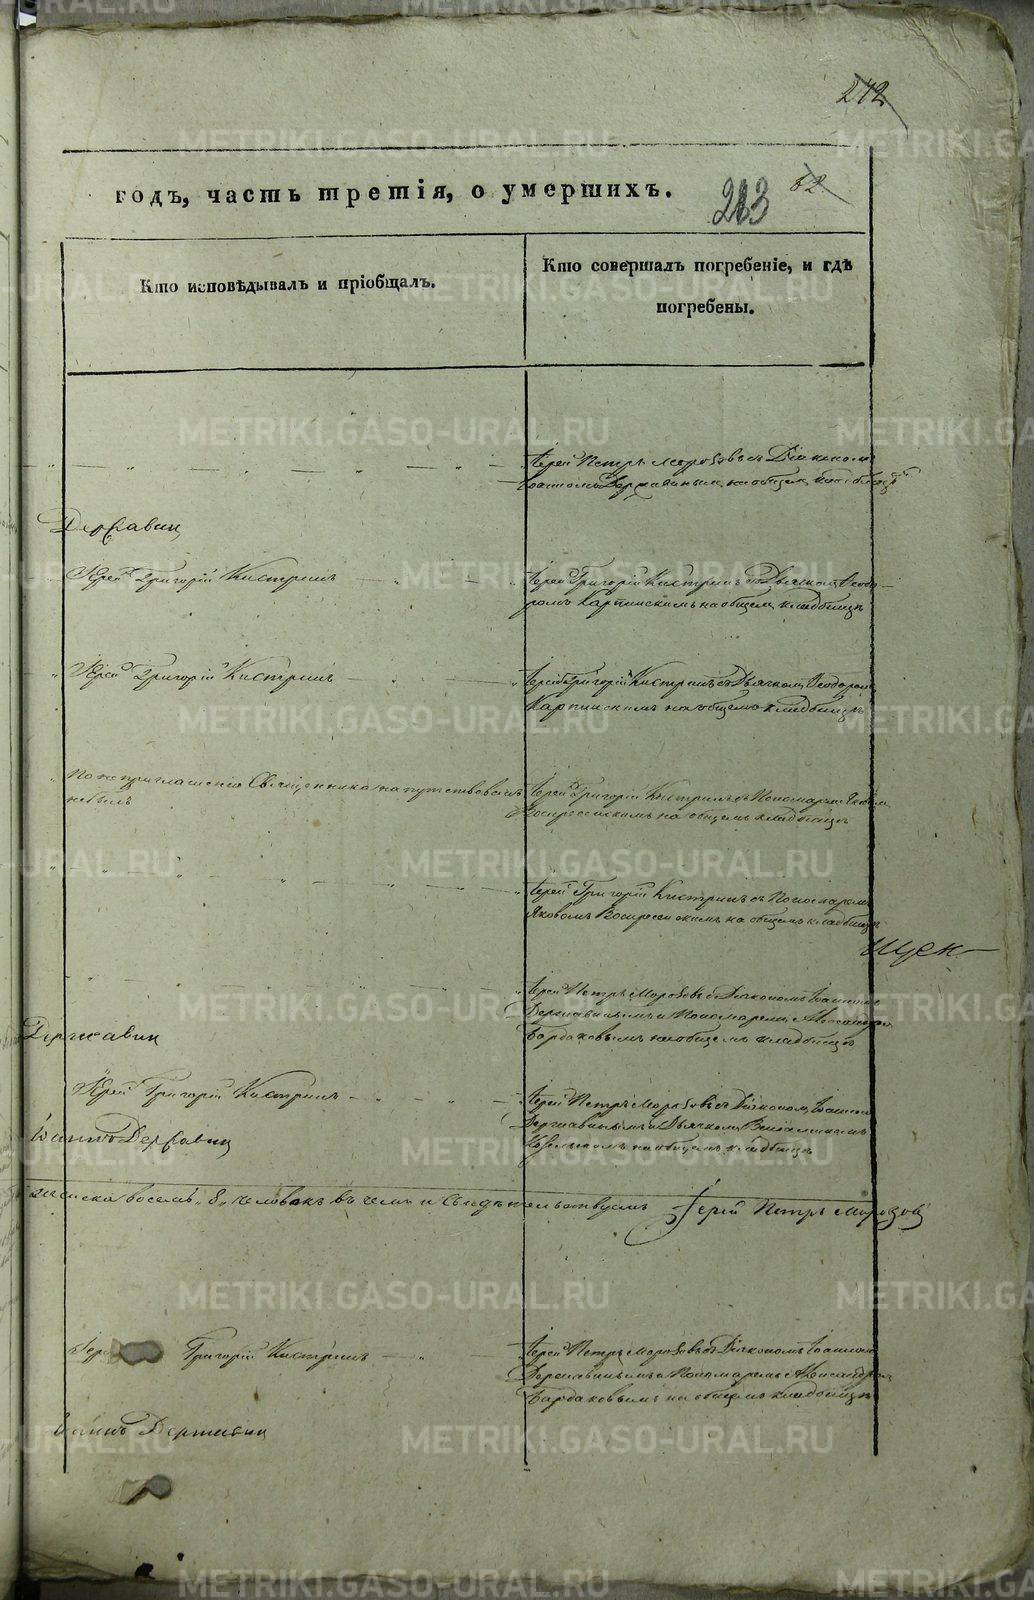 METRIKI.GASO-URAL.RU
212
годъ, часть третія, о умершихъ.
213
62
Кто исповѣдывалъ и пріобщалъ.
Кто совершалъ погребеніе, и гдѣ
погребены.
Іерей Петръ Морозовъ съ Діакономъ
Іоанномъ Державинымъ на общемъ кладбищѣ
Державин
Іерей Григорій Кистринъ
Іерей Григорій Кистринъ съ Дьячкомъ Ѳеодо-
ромъ Карпинскимъ на общемъ кладбищѣ
Іерей Григорій Кистринъ
Іерей Григорій Кистринъ съ Дьячкомъ Ѳеодоромъ
Карпинскимъ на общемъ кладбищѣ
По неприглашенію Священника напутствованъ
небылъ
Іерей Григорій Кистринъ съ Пономаремъ Яковомъ
Воскресенскимъ на общемъ кладбищѣ
Іерей Григорій Кистринъ съ Пономаремъ
Яковомъ Воскресенскимъ на общемъ кладбищѣ
Іерей Петръ Морозовъ съ Діакономъ Іоанномъ
Державинымъ и Пономаремъ Александромъ
Бардаковымъ на общемъ кладбищѣ
Державин
Іерей Григорій Кистринъ
Іерей Петръ Морозовъ съ Діакономъ Іоанномъ
Державинымъ и Дьячкомъ Веніаминомъ
на общемъ кладбищѣ
Іоаннъ Державин
женска восемь 8 человѣкъ въ чемъ и Свидѣтельствуемъ Іерей Петръ Морозов
Григорій Кистринъ
Іерей Петръ Морозовъ съ Діакономъ Іоанномъ
Державинымъ и Пономаремъ Александромъ
Бардаковымъ на общемъ кладбищѣ
Іоаннъ Державин